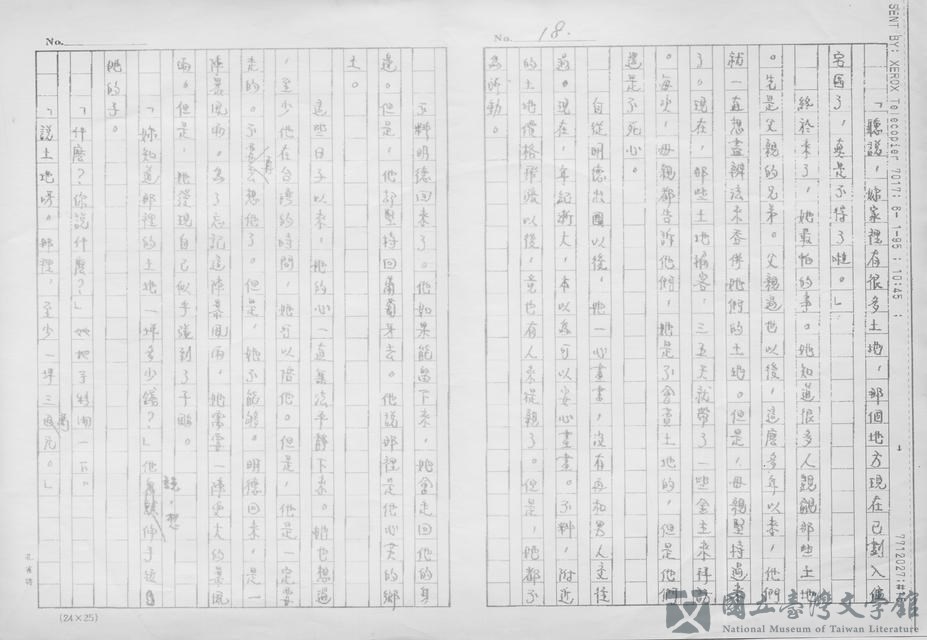 SENT BY: XEROX Telecopier 7017; 8- 1-95 ; 10:45 ;
7712027;#
No. 18.
「聽說，妳家裡有很多土地，那個地方現在已劃入住
宅區了，真是不得了啦。」
終於來了，她最怕的事。她知道很多人覬覦那些土地
。先是父親的兄弟。父親過世以後，這麼多年以來，他們
就一直想盡辦法來吞併她們的土地。但是，母親堅持過來
了。現在，那些土地掮客，三五天就帶了一些金主來拜訪
。每次，母親都告訴他們，她是不會賣土地的，但是他們
還是不死心。
自從明德出國以後，她一心畫畫，沒有再和男人交往
過。現在，年紀漸大，本以為可以安心畫畫。不料，附近
的土地價格飛漲以後，竟也有人來提親了。但是，她都不
為所動。
No.
不料明德回來了。他如果能留下來，她會走回他的身
邊。但是，他卻堅持回葡萄牙去。他說那裡是他心靈的鄉
土。
這些日子以來，她的心一直無法平靜下來。她也想過
，至少他在台灣的時間，她可以陪他。但是，他是一定要
走的。不要再想他了。但是，她不能夠。明德回來，是一
陣暴風雨。為了忘記這陣暴風雨，她需要一陣更大的暴風
雨。但是，她發現自己似乎強到了子昭。
「妳知道那裡的土地一坪多少錢？」他說，想伸手
她的手。
「什麼？你說什麼？」她把子稍
「說土地呀。那裡，至少一坪三萬元。」
(24×25)
國立臺灣文學館
National Museum of Taiwan Literature